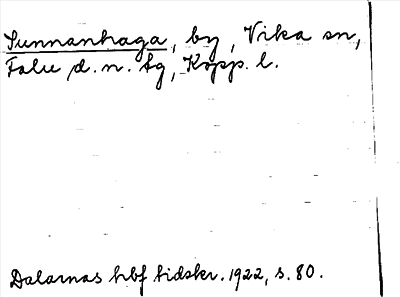 Sunnanhaga, by, Vika sn,
Falu d. n. tg, Kopp. l.
Dalarnas hbf tidskr. 1922, s. 80.